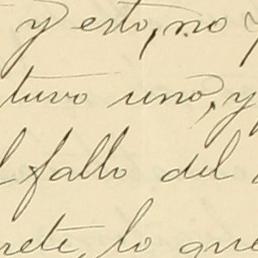 y esto, no
tuvo uno, y
l fallo del
rete, lo que